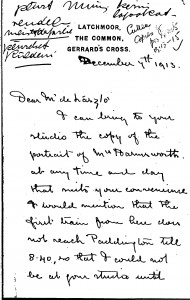 LATCHMOOR,
THE COMMON,
GERRARD'S CROSS.
December 7th 1913.
Dear Mr de László
I can bring to your
studio the copy of the
portrait of Mrs Harmsworth
at any time and day
that suits your convenience
I would mention that the
first train from here does
not reach Paddington till
8.40, so that I could not
be at your studio until